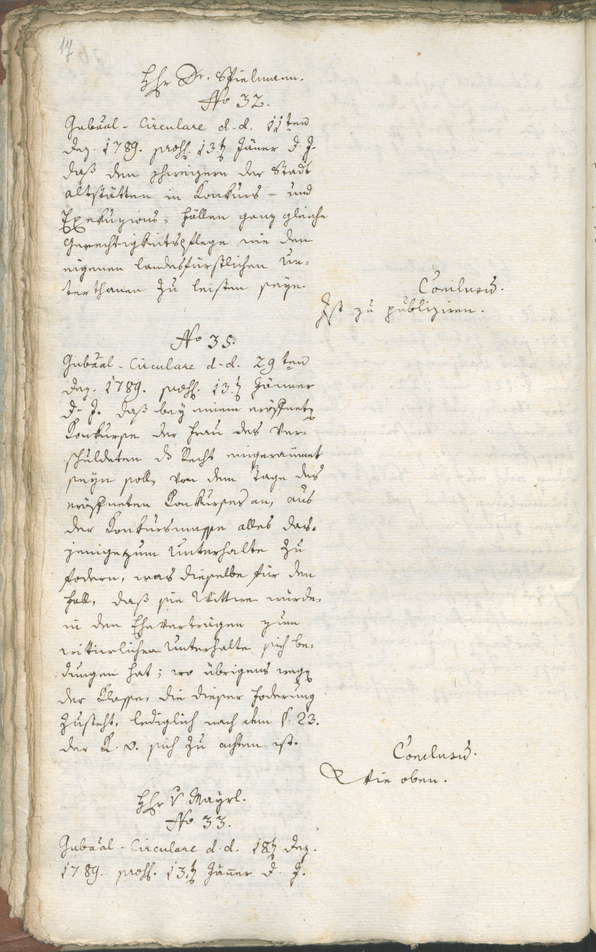 17
Hhr Dr. Spielmann.
No 32.
Gubäal-Circulare d. d. 11ten
Dez. 1789. präs. 13t Jäner d. J.
daß den Schweizern der Stadt
Altstätten in Konkurs- und
Exekuzions-Fällen ganz gleiche
Gerechtigkeitspflege wie den
eigenen landesfürstlichen Un-
terthanen zu leisten seye.
Conclusum.
Ist zu publiziren.
No 35.
Gubäal-Circulare d. d. 29ten
Dez. 1789. präs. 13t Jänner
d. J. daß bey einem eröffneten
Konkurse der Frau des Ver-
schuldeten das Recht eingeraumet
seyn soll, von dem Tage des
eröffneten Konkurses an, aus
der Konkursmasse alles das-
jenige zum Unterhalte zu
fodern, was dieselbe für den
Fall, daß sie Wittwe würde,
in den Eheverträgen zum
wittiblichen Unterhalte sich be-
dungen hat; wo übrigens wegen
der Klasse, die dieser Foderung
zusteht, lediglich nach dem §. 23.
der K. O. sich zu achten ist.
Conclusum.
Wie oben.
Hhr v Mayrl.
No 33.
Gubäal-Circulare d. d. 18t Dez.
1789. präs. 13t Jäner d. J.